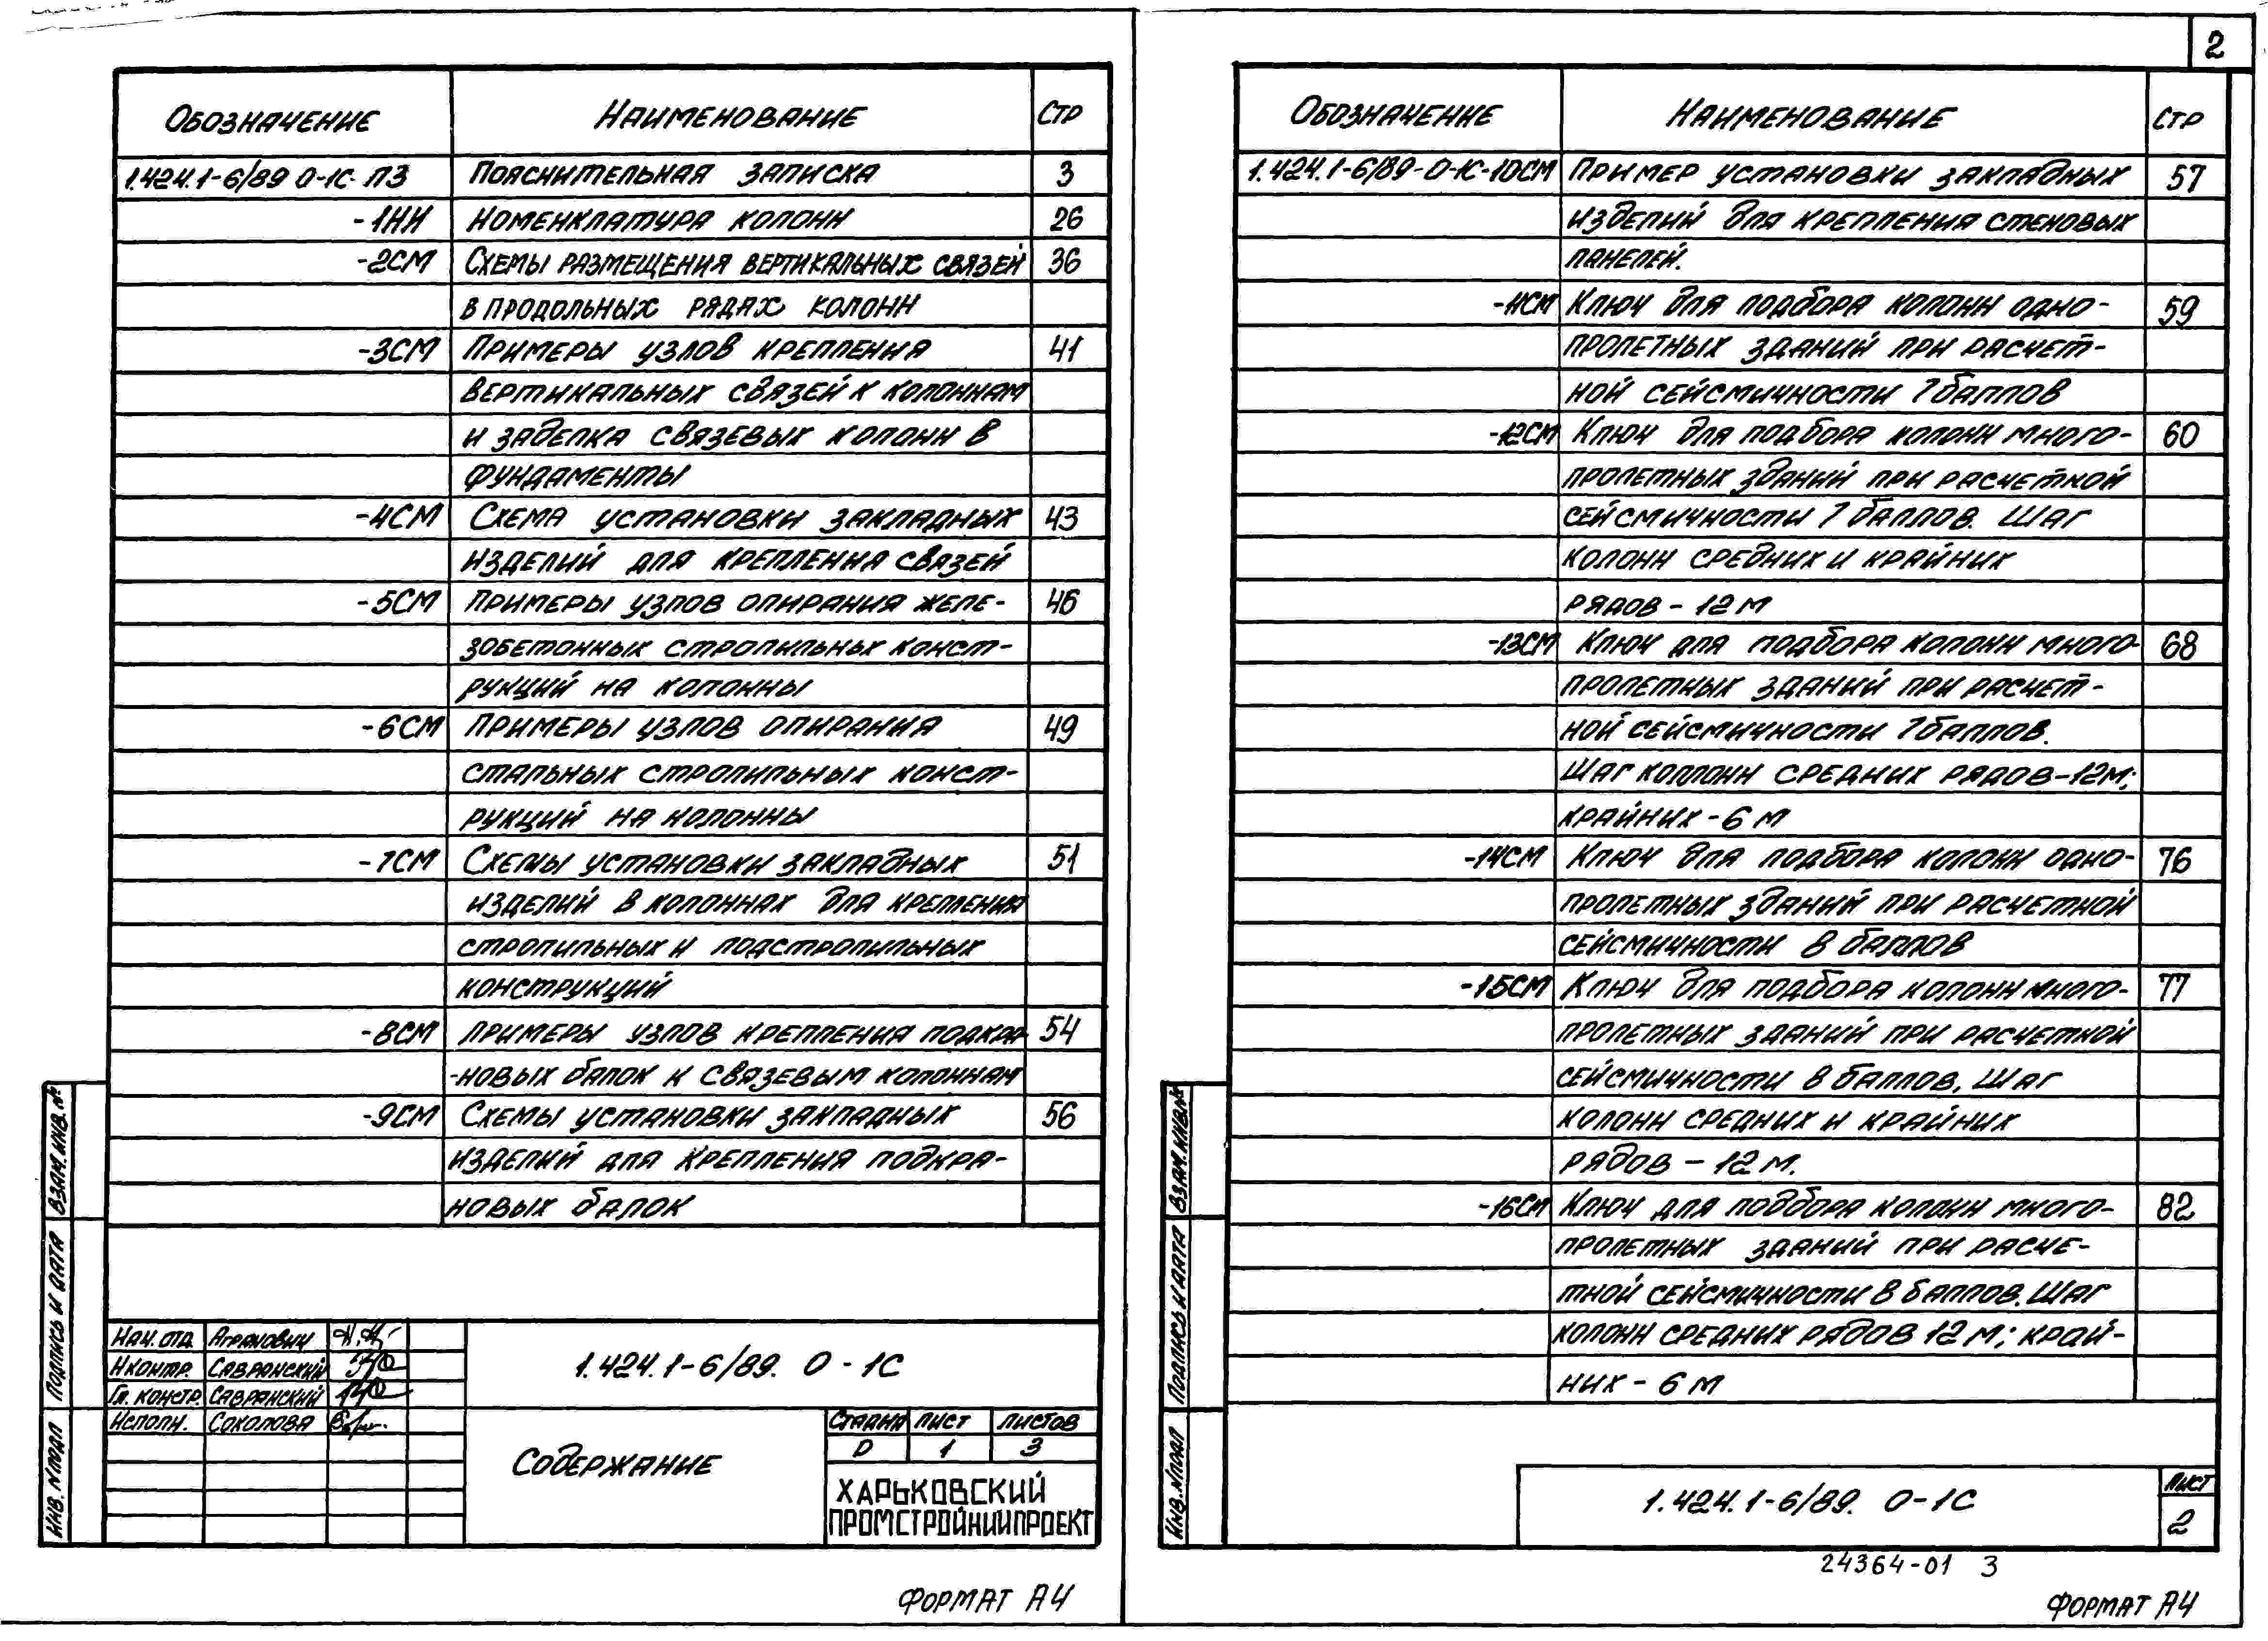 Обозначение Наименование Стр
1.424.1-6/89 0-1С ПЗ Пояснительная записка 3
-1НИ Номенклатура колонн 26
-2СМ Схемы размещения вертикальных связей 36
в продольных рядах колонн
-3СМ Примеры узлов крепления 41
вертикальных связей к колоннам
и заделка связевых колонн в
фундаменты
-4СМ Схема установки закладных 43
изделий для крепления связей
-5СМ Примеры узлов опирания желе- 46
зобетонных стропильных конст-
рукций на колонны
-6СМ Примеры узлов опирания 49
стальных стропильных конст-
рукций на колонны
-7СМ Схемы установки закладных 51
изделий в колоннах для крепления
стропильных и подстропильных
конструкций
-8СМ Примеры узлов крепления подкра- 54
-новых балок к связевым колоннам
-9СМ Схемы установки закладных 56
изделий для крепления подкра-
новых балок
Взам. инв. №
Подпись и дата
Инв. № подл
Нач. отд. Агранович
Н контр. Савранский
Гл. констр. Савранский
Исполн. Соколова
1.424.1-6/89. 0-1С
Содержание
Стадия Лист Листов
Р 1 3
ХАРЬКОВСКИЙ
ПРОМСТРОЙНИИПРОЕКТ
Формат А4
2
Обозначение Наименование Стр
1.424.1-6/89-0-1С-10СМ Пример установки закладных 57
изделий для крепления стеновых
панелей.
-11СМ Ключ для подбора колонн одно- 59
пролетных зданий при расчет-
ной сейсмичности 7 баллов
-12СМ Ключ для подбора колонн много- 60
пролетных зданий при расчетной
сейсмичности 7 баллов. Шаг
колонн средних и крайних
рядов - 12 м
-13СМ Ключ для подбора колонн много- 68
пролетных зданий при расчет-
ной сейсмичности 7 баллов.
Шаг колонн средних рядов-12м;
крайних - 6 м
-14СМ Ключ для подбора колонн одно- 76
пролетных зданий при расчетной
сейсмичности 8 баллов
-15СМ Ключ для подбора колонн много- 77
пролетных зданий при расчетной
сейсмичности 8 баллов, Шаг
колонн средних и крайних
рядов - 12 м.
-16СМ Ключ для подбора колонн много- 82
пролетных зданий при расче-
тной сейсмичности 8 баллов. Шаг
колонн средних рядов 12 м; край-
них - 6 м
Взам. инв. №
Подпись и дата
Инв. № подл
1.424.1-6/89. 0-1С
Лист
2
24364-01 3
Формат А4